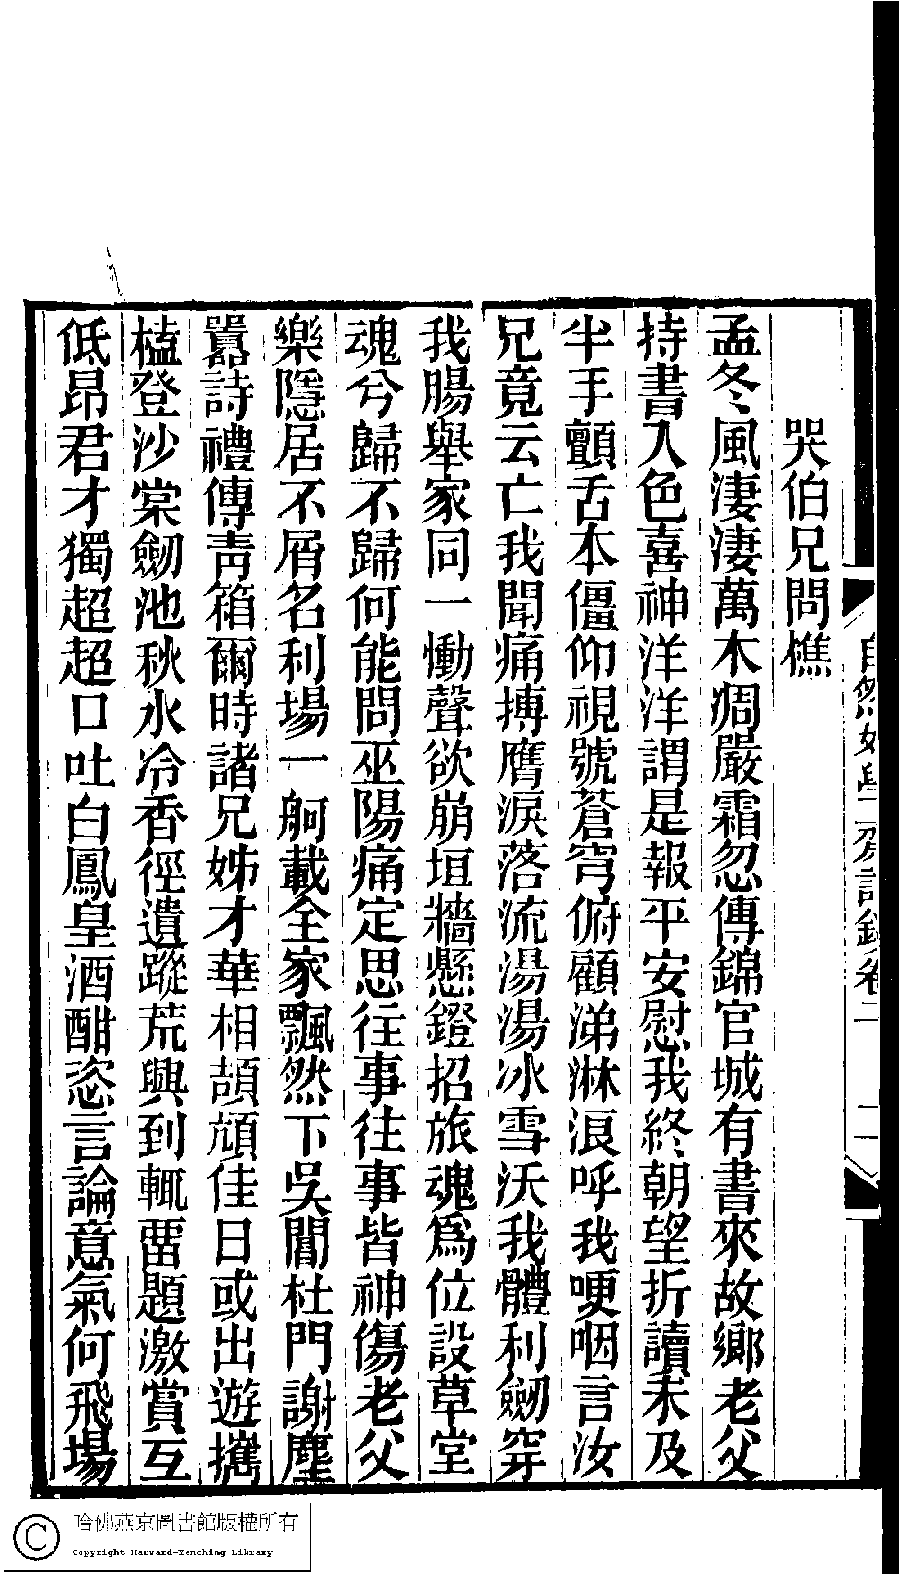 哭伯兄問樵
孟冬風淒淒萬木凋嚴霜忽傳錦官城有書來故鄉老父
持書入色喜神洋洋謂是報平安慰我終朝望折讀未及
半手顫舌本僵仰視號蒼穹俯顧涕淋浪呼我哽咽言汝
兄竟云亡我聞痛搏膺淚落流湯湯冰雪沃我體利劒穿
我腸舉家同一慟聲欲崩垣牆懸鐙招旅魂為位設草堂
魂兮歸不歸何能問巫陽痛定思往事往事皆神傷老父
樂隱居不屑名利場一舸載全家飄然下吳閶杜門謝塵
囂詩禮傳青箱爾時諸兄姊才華相頡頏佳日或出遊攜
榼登沙棠劒池秋水冷香徑遺蹤荒興到輒畱題激賞互
低昂君才獨超超口吐白鳳皇酒酣恣言論意氣何飛場
自然好學齋詩鈔卷二
二
哈佛燕京圖書館版權所有
Copyright Harvard-Yenching Library